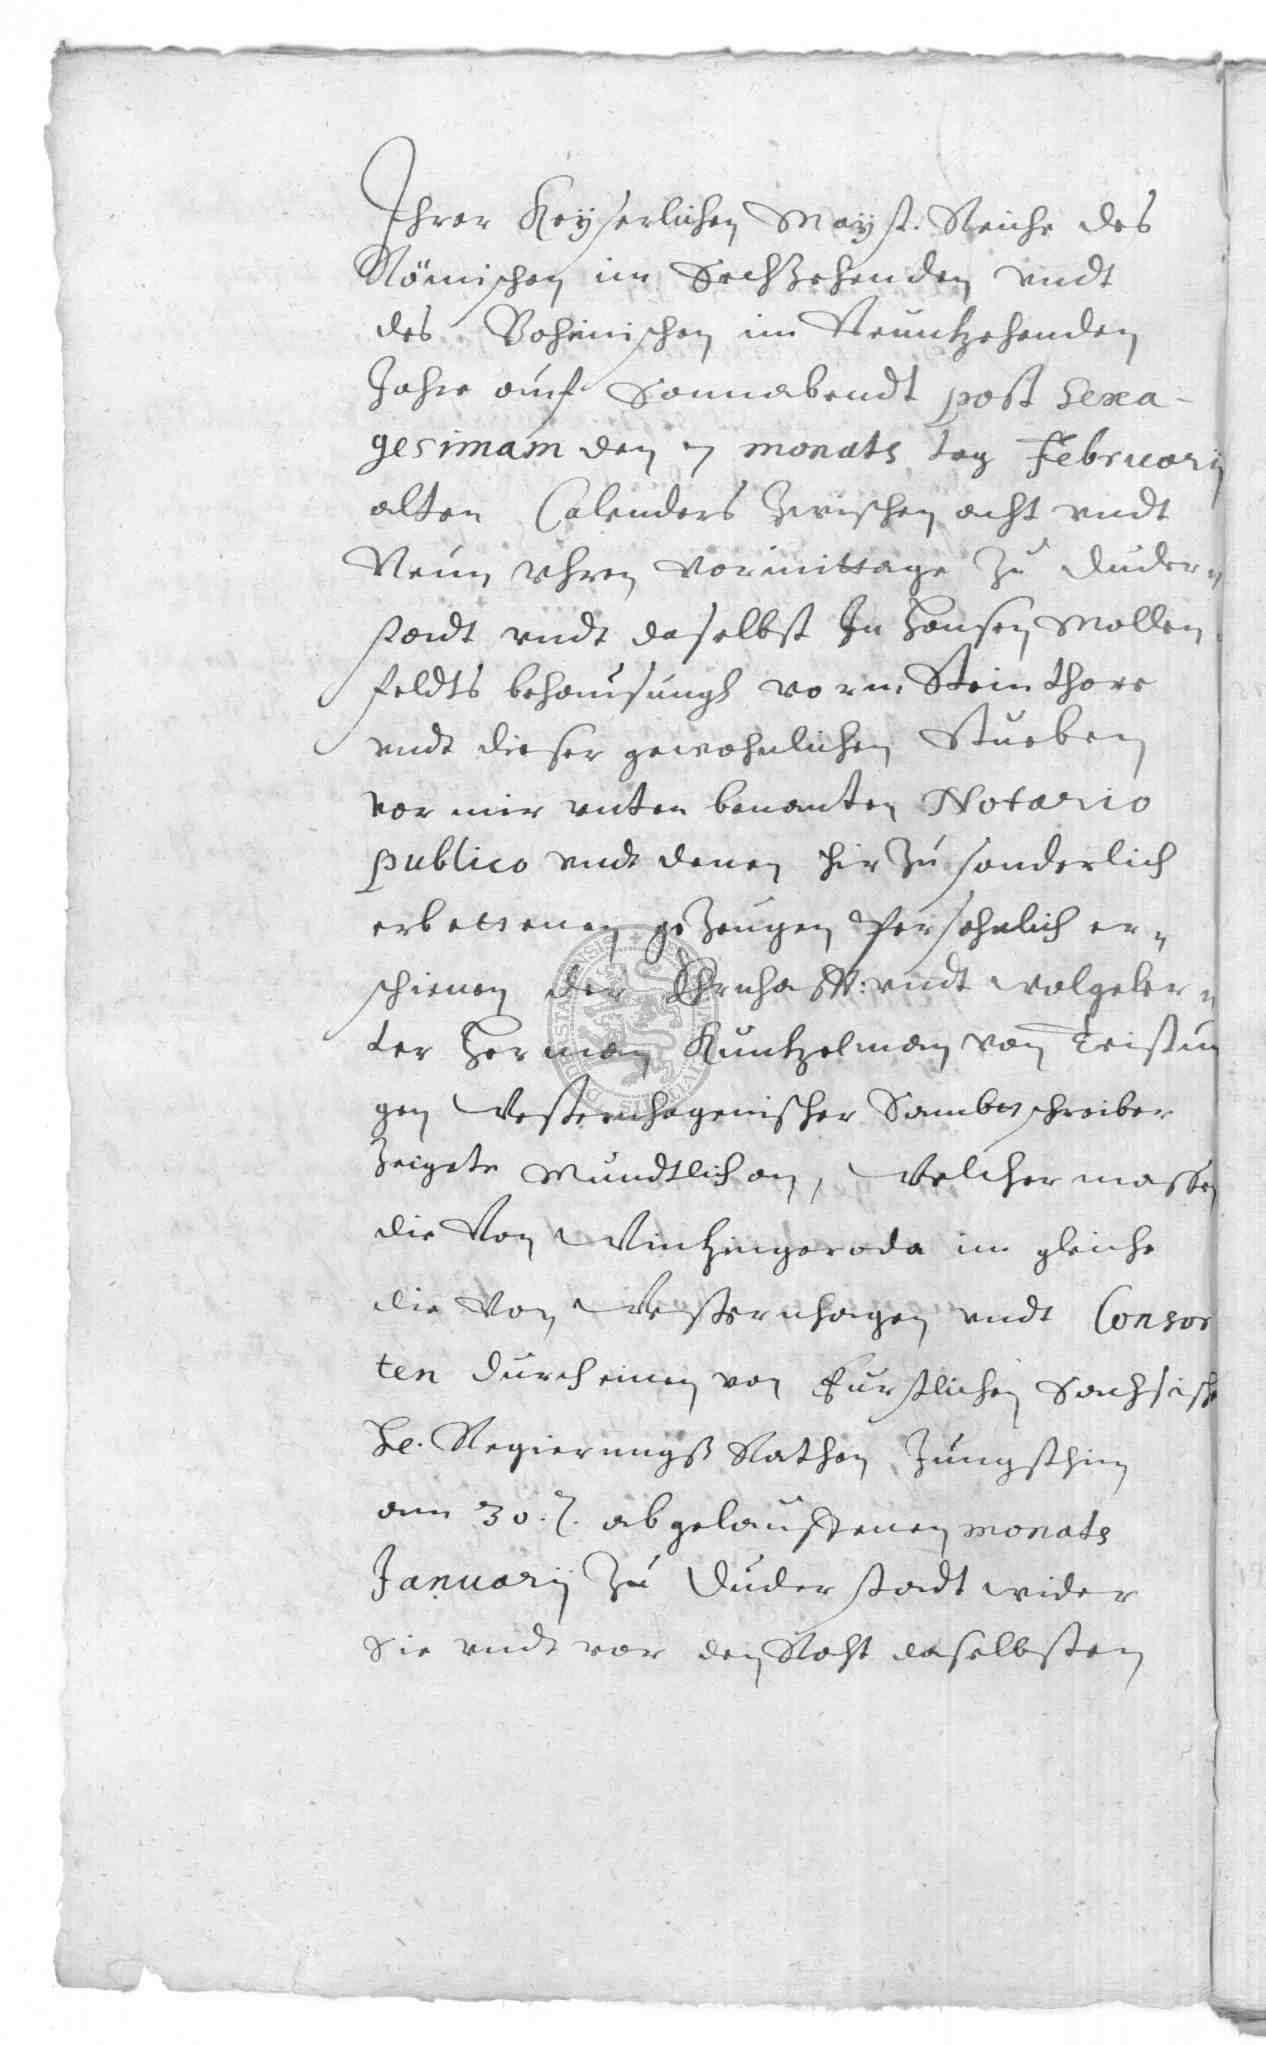 Ihrer Keyserlichen Mayst. Reiche des
Römischen im Sechßzehenden vndt
des Bohmischen im Neuntzehenden
Jahre auf Sonnabendt post Sexa-
gesimam den 7 monats tag Februarij
alten Calenders Zwischen acht vndt
Neun vhren vormittage Zu Duder-
stadt vndt daselbst In Hansen Mollen
feldts behausungh vorm Steinthore
vndt dieser gewohnlichen Stueben
vor mir vnten benanten Notario
publico vndt denen hirzu sonderlich
erbettenen geZeugen Persohnlich er-
schienen der Ehrnhafft: vndt wolgeler-
ter Herman Kuntzelman von Teistun
gen Westernhagenischer Sambtschreiber
Zeigete Mundtlich an, Welcher massen
die Von Wintzingeroda im gleiche
die Von Westernhagen vndt Consor
ten durch einen von Furstlichen Sachsisch
He. Regierungß Rathen Jungsthin
am 30. abgelauffenen monats
Januarij Zu Duderstadt wider
Sie vndt vor den Raht daselbsten